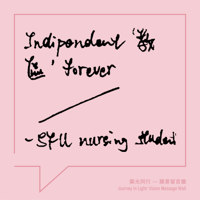 Indipendent '
' Forever
- SFU nursing student
榮光同行 — 願景留言牆
Journey In Light: Vision Message Wall